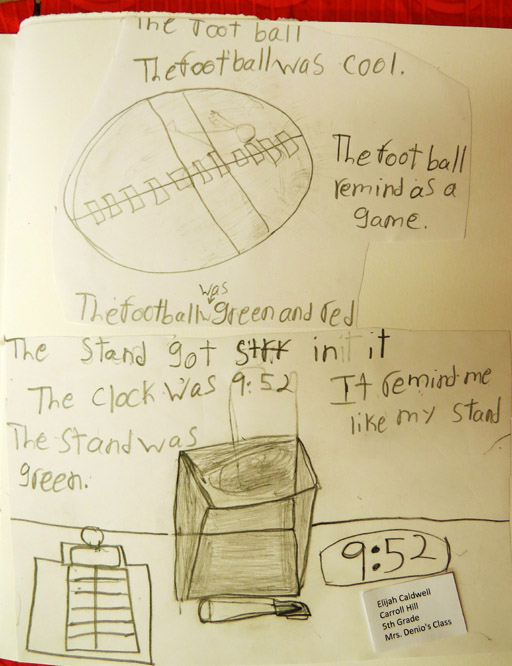 The foot ball
The football was cool.
The foot ball
remind as a
game.
was
The football green and red
The Stand got in it
The clock was 9:52
It remind me
like my stand
The Stand was
green.
9:52
Elijah Caldwell
Carroll Hill
5th Grade
Mrs. Denio's Class